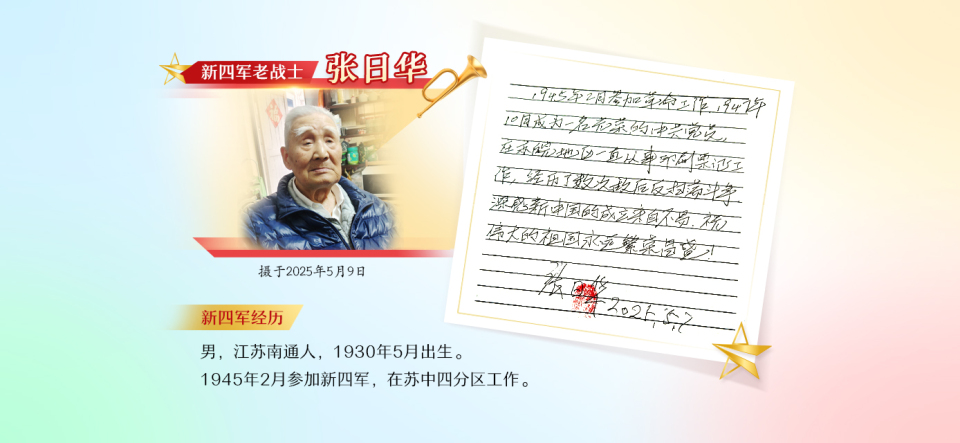 新四军老战士 张日华
摄于2025年5月9日
新四军经历
男，江苏南通人，1930年5月出生。
1945年2月参加新四军，在苏中四分区工作。
1945年2月参加革命工作，1947年
10月成为一名光荣的中共党员。
在苏皖地区一直从事
作，经历了数次敌后反扫荡斗争
深感新中国的成立来自不易，祝
伟大的祖国永远繁荣昌盛！
张日华
2025,5,7